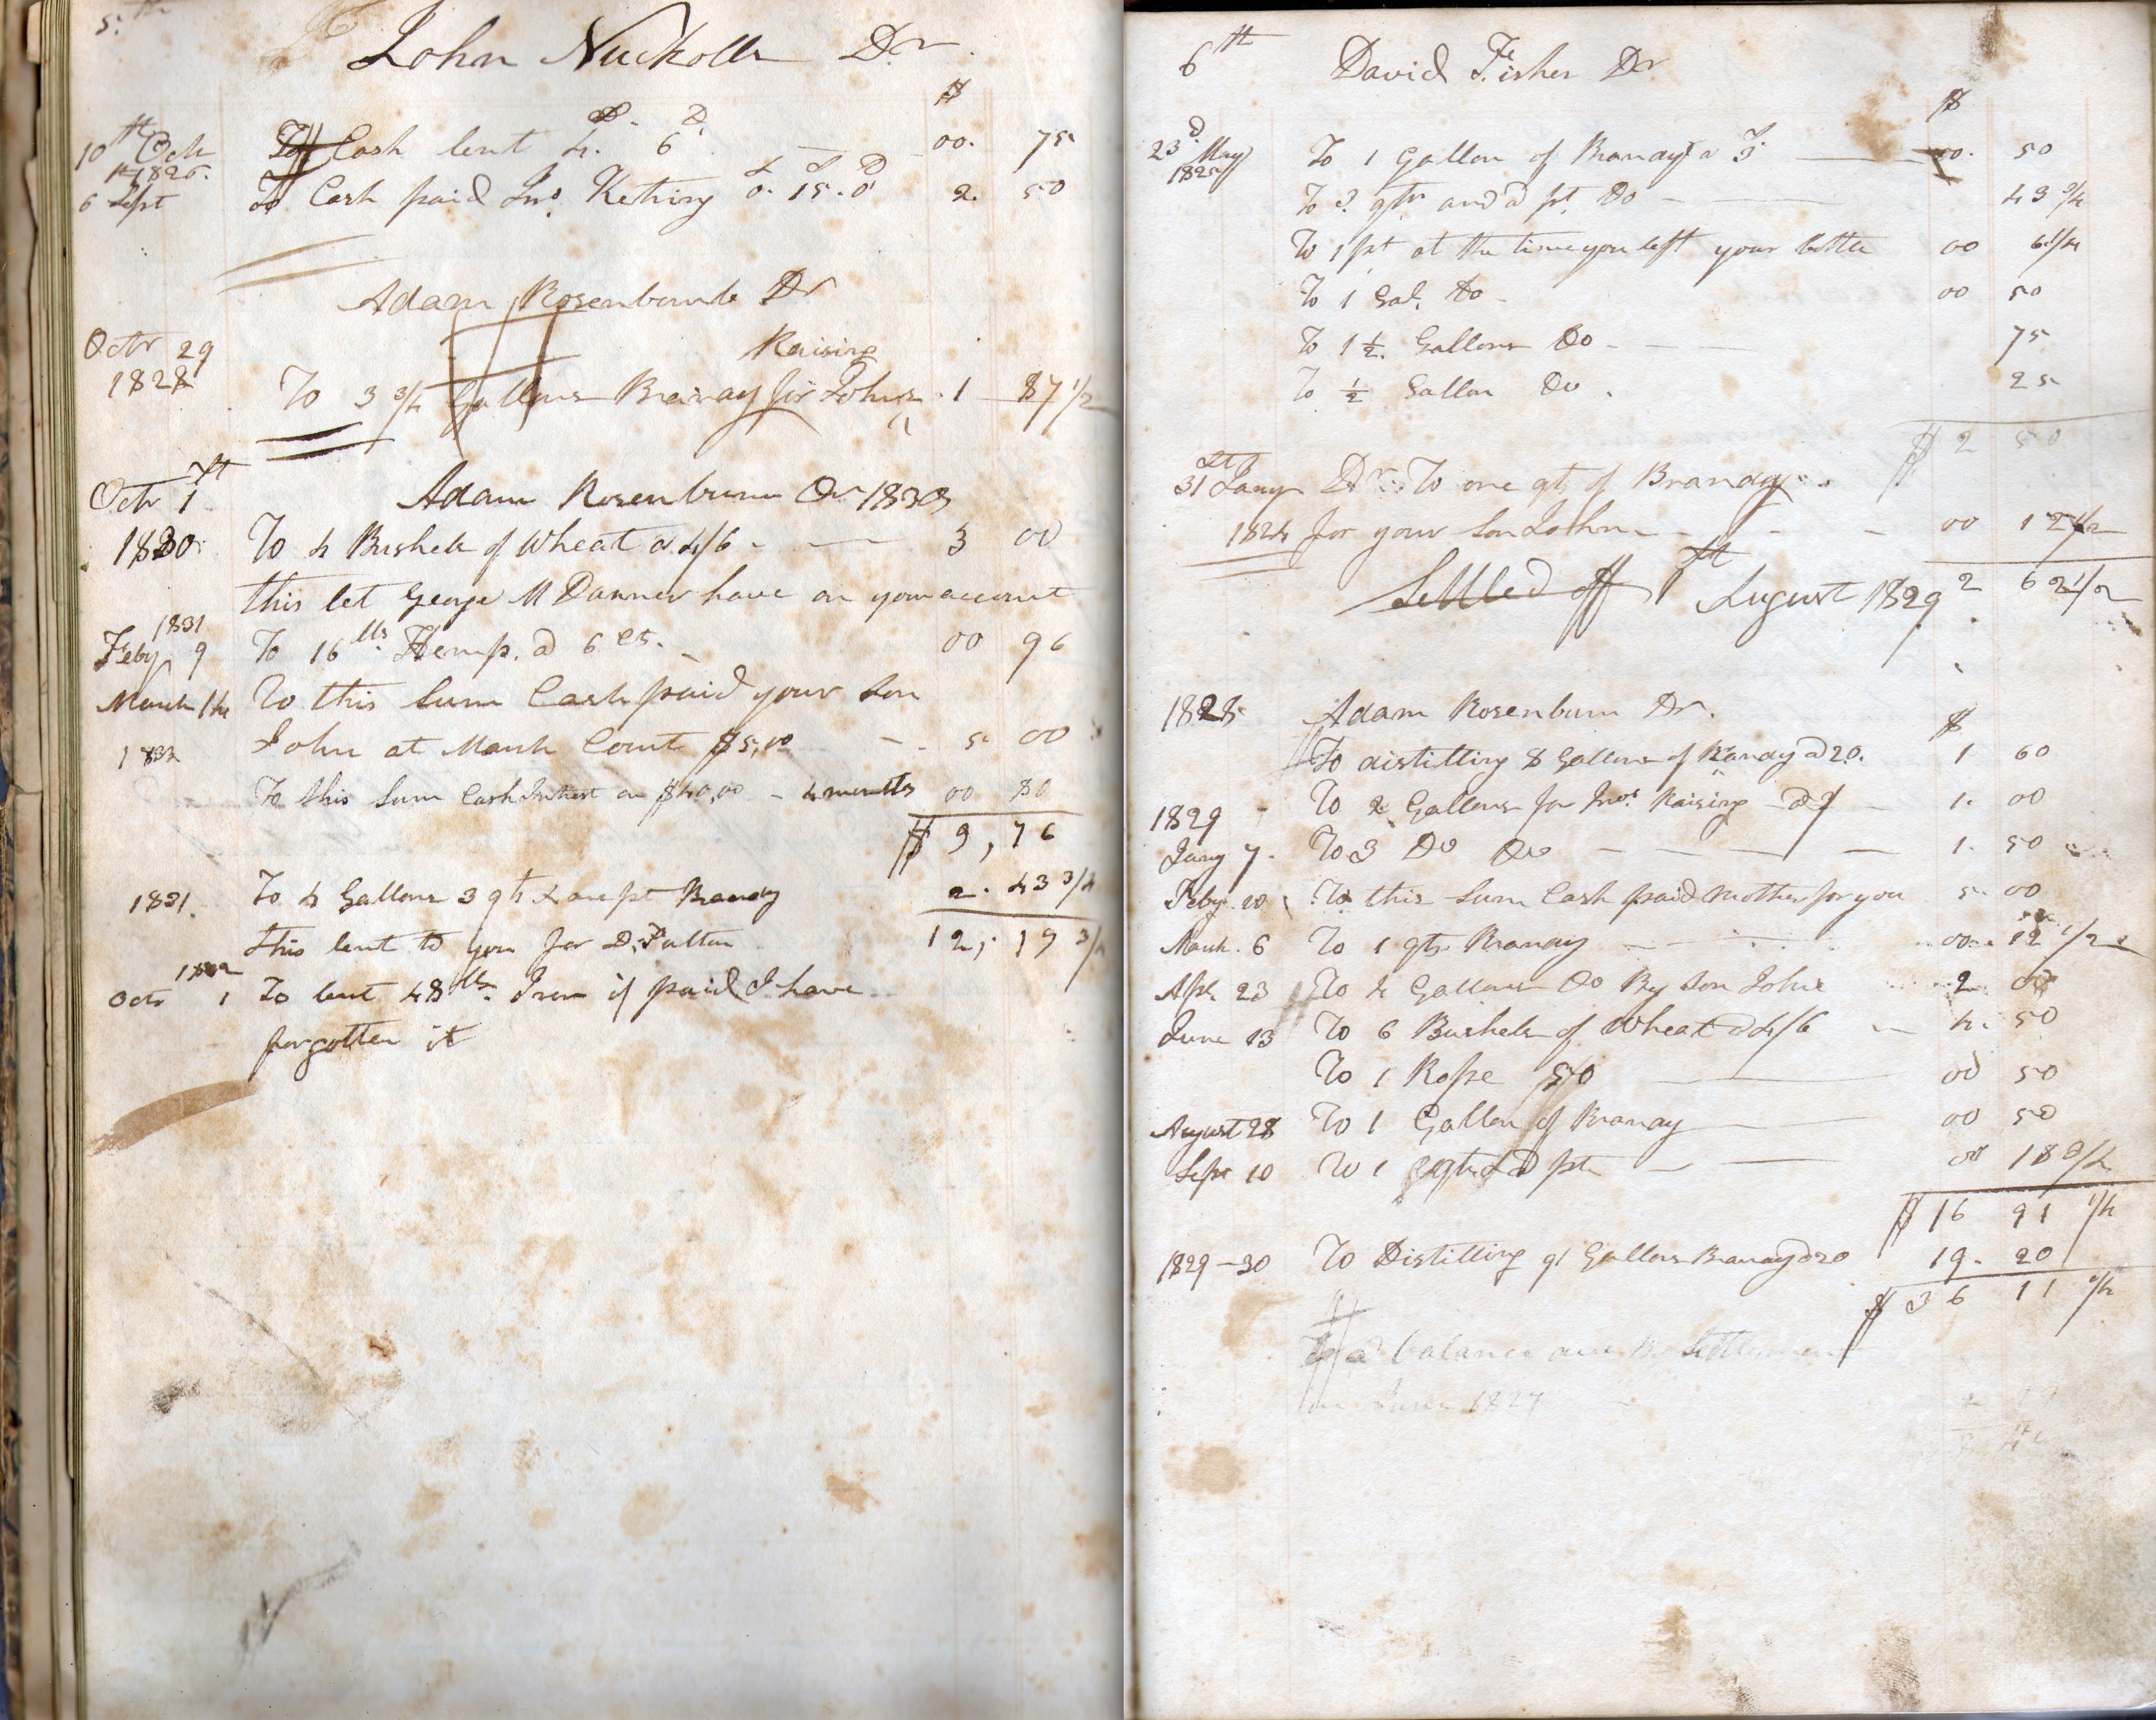 5.th
John Nuckolls Dr
$
S. D
10th Oct To Cash lent 4. 6 00. 75
1826.
£ S D
6 Sept To Cash paid Jno. Ketring 0. 15. 0 2. 50
Adam Rosenbaum Dr
Octr 29 Raising
1828 To 3 3/4 Gallons Branay for Johns 1 87 1/2
Octr 1st Adam Rosenbum Dr 1830
1830 To 4 Bushels of Wheat a 4/6 - 3 00
this let George M Danner have on your account
1831
Feby 9 To 16 lbs Hemp. a 6 cts. 00 96
March 14 To this Sum Cash paid your Son
1832 John at March Court $5,00 - 5 00
To this Sum Cash Interest on $40,00 - 4 months 00 80
$ 9, 76
1831. To 4 Gallons 3 qts & one pt Brandy 2. 43 3/4
this lent to you for D. Fulton 12, 19 3/4
Octr 1 To lent 48 lbs. Iron if paid I have
forgotten it
6th David Fisher Dr
$
23d May To 1 Gallon of Branay a 3 00. 50
1825
To 3 qts and a pt. Do - 43 3/4
To 1 pt at the time you left your bottle 00 6 1/4
To 1 Gal. Do - 00 50
To 1 1/2 Gallons Do - 75
To 1/2 Gallon Do . 25
$ 2 50
31st Jany Dr. To one qt of Branday
1824 for your Son John - 00 12 1/2
Settled off 1st August 1829 2 62 1/2
1828 Adam Rosenbum Dr.
$
To distilling 8 Gallons of Branay a 20. 1 60
1829 - To 2 Gallons for Jnos Raising - 1. 00
Jany 7. To 3 Do Do - 1. 50
Feby. 10 To this Sum Cash paid Mother for you 5. 00
March. 6 To 1 qt Branay 00. 12 1/2
Apl. 23 To 4 Gallons Do By Son John 2 00
June 13 To 6 Bushels of Wheat a 4/6 4. 50
To 1 Rope 50 00 50
August 28 To 1 Gallon of Branay 00 50
Sept 10 To 1 qt & a pt 00 18 3/4
$ 16 91 1/4
1829-30 To Distilling 91 Gallons Branay a 20 19. 20
$ 36 11 1/4
To a balance due By Settlement
in June 1827